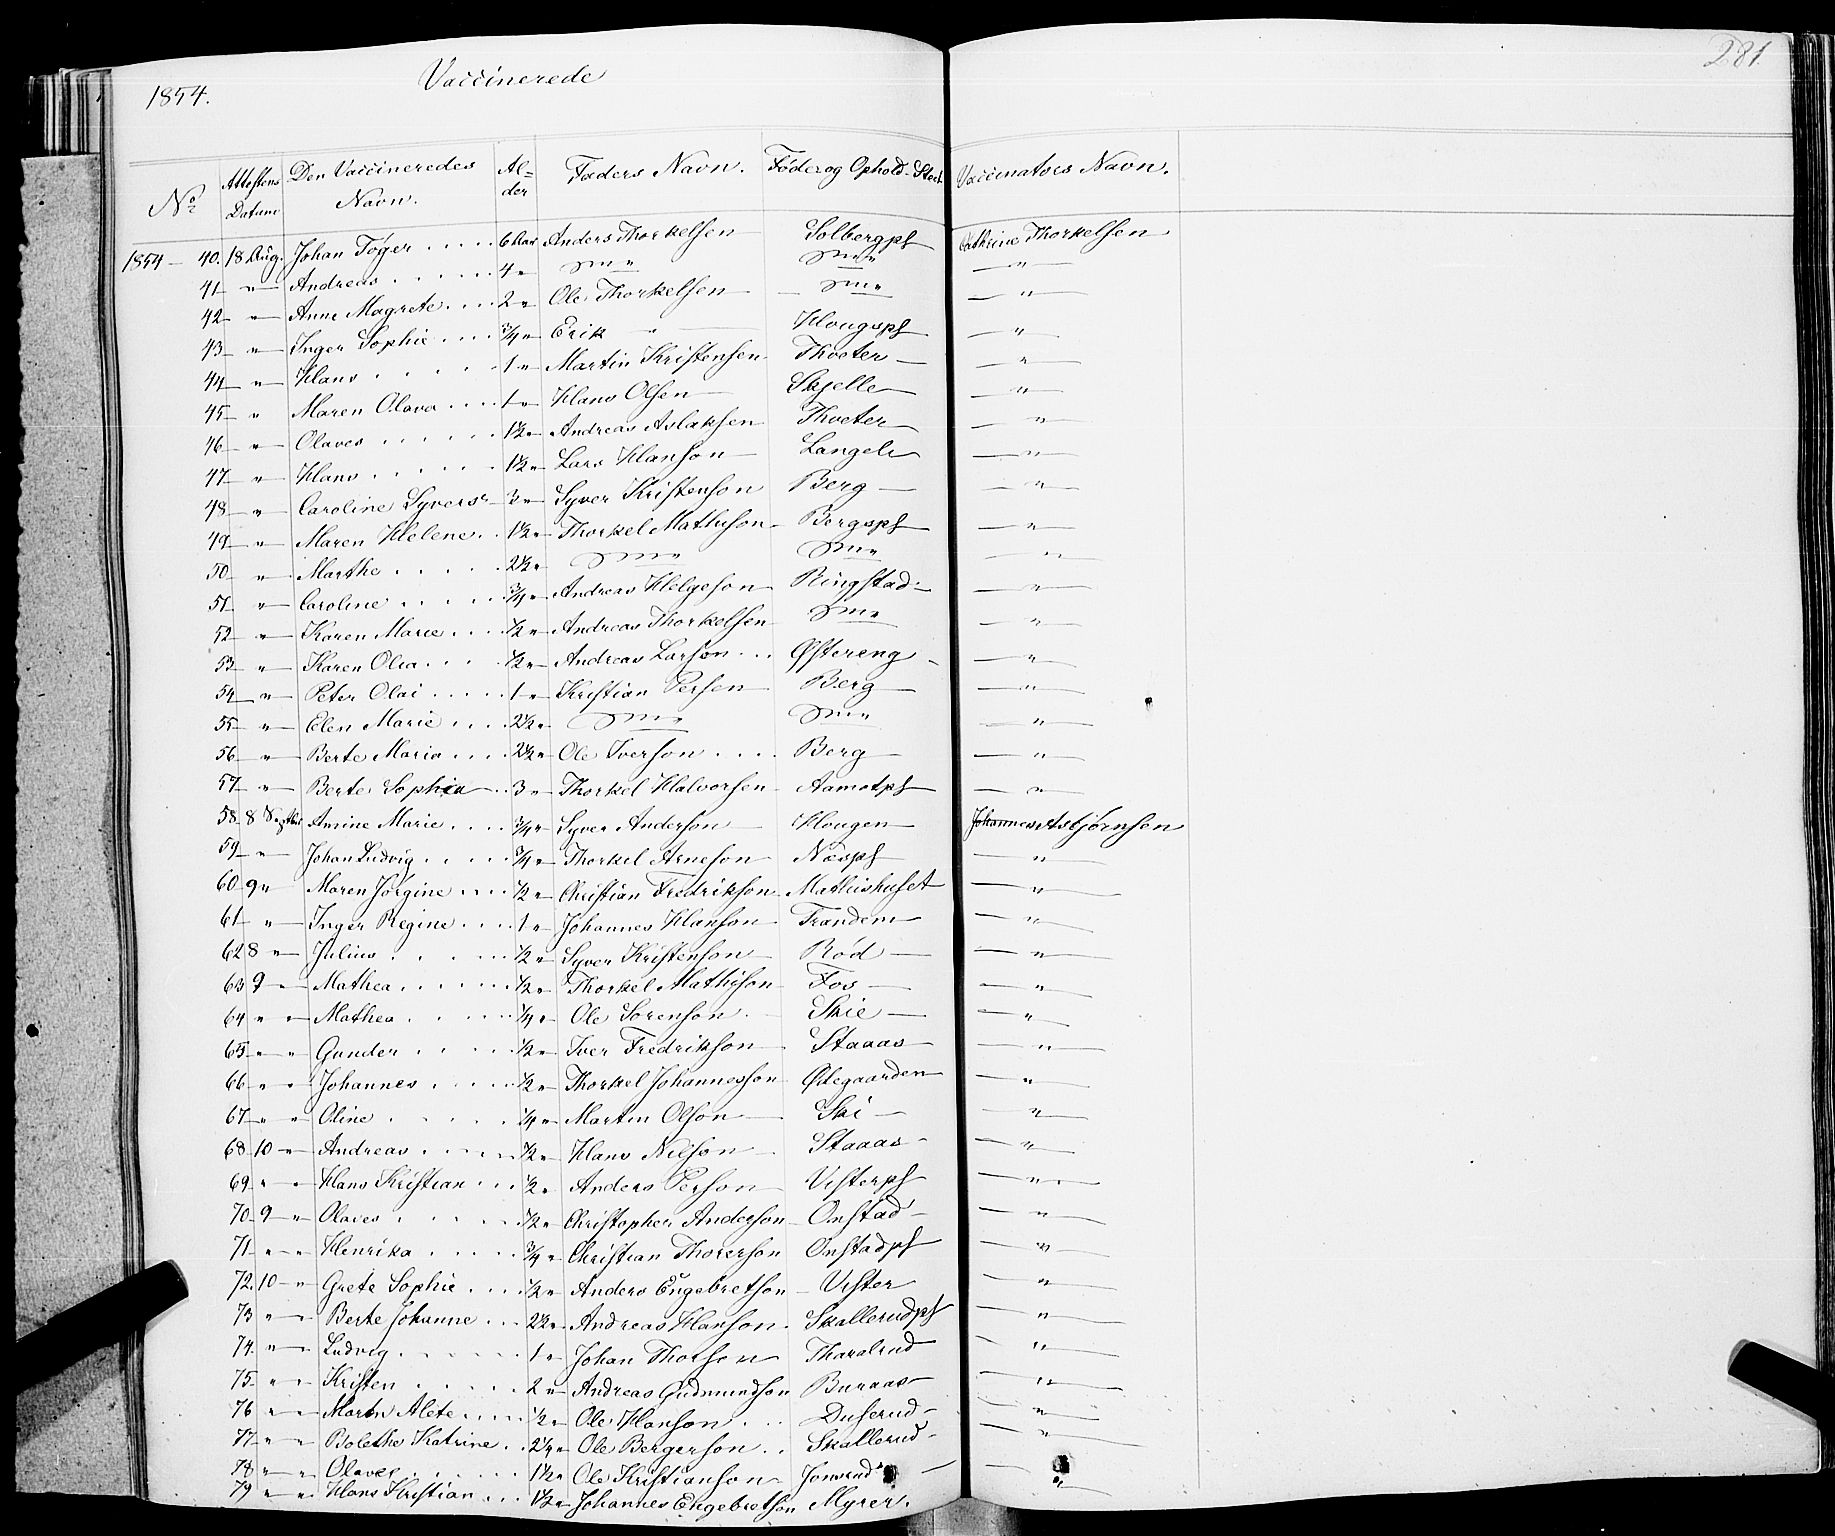 281.
1854. Vaccinerede
No Attestens Datum Den Vaccineredes Navn. Alder Faders Navn. Føde og Ophold-Sted Vaccinators Navn.
1854 — 40. 18 Aug. Johan Töger .... 6 Aar Anders Thorkelsen Solbergpf Cathrine Thorkelsen
41 — " — Andreas ...... 4 " — " — " — " —
42 — " — Anne Magrete .... 2 " Ole Thorkelsen — " — " —
43 — " — Inger Sophie .... 3/4 " Erik — " — Hougspf — " —
44 — " — Hans ...... 1 " Martin Kristensen Thveter — " —
45 — " Maren Olava .... 1 " Hans Olsen Skjelle — " —
46 — " — Olaves ...... 1½ " Andreas Aslaksen Thveter — " —
47 — " — Hans ...... 1½ " Lars Hanson Langeli — " —
48 — " — Caroline Syversr 3 " Syver Kristenson Berg — " —
49 — " — Maren Helene .. 1½ " Thorkel Mathison Bergspf — " —
50 — " — Marthe ..... 2½ " — " — " — " —
51 — " — Caroline ..... 3/4 " Andreas Helgeson Ringstad — " —
52 — " — Karen Marie .... ½ " Andreas Thorkelsen — " — " —
53 — " — Karen Olea .... ½ " Andreas Larson ... Østereng — " —
54 — " — Peter Olai ..... 1 " Kristian Persen Berg — " —
55 — " — Elen Marie .... 2½ " — " — " — " —
56 — " — Berte Maria ... 2½ " Ole Iverson .... Berg — " —
57 — " — Berte Sophia .. 3 " Thorkel Halvorsen Aamotpf — " —
58 8 Septbr Amine Marie .... 3/4 " Syver Anderson Hougen Johannes Asbjörnsen
59 — " — Johan Ludvig .... 3/4 " Thorkel Arneson Næspf — " —
60 9 " Maren Jörgine .... ½ " Christian Fredrikson Mathishuset — " —
61 — " — Inger Regine .... 1 " Johannes Hanson Trandem — " —
62 8 " — Julius ...... ½ " Syver Kristenson Röd — " —
63 9 " — Mathea ...... ½ " Thorkel Mathison Fos — " —
64 " " Mathea ...... ¼ " Ole Sorenson Skie — " —
65 " " Gunder ..... ½ " Iver Fredrikson Staaas — " —
66 " " Johannes ..... ½ " Thorkel Johannesson Ødegaarden — " —
67 " " Oline ..... ¼ " Martin Olson Ski — " —
68 10 " Andreas ..... ½ " Hans Nilson Staaas — " —
69 " " Hans Kristian ... ½ " Anders Person Visterpf — " —
70 9 " Olaves ..... ½ " Christopher Anderson Onstad — " —
71 " " Henrika ..... 3/4 " Christian Thorerson Onstadpf — " —
72 10 " Grete Sophie .... ½ " Anders Engebretson Vister — " —
73 " " Berte Johanne ... 2½ " Andreas Hanson Skallerudpf — " —
74 " " Ludvig ...... 1 " Johan Thorsen Tharalrud — " —
75 " " Kristen ..... 2 " Andreas Gudmundson Buraas — " —
76 " " Martn Alete ..... ½ " Ole Hanson ... Duserud — " —
77 " " Bolethe Katrine .. 2½ " Ole Bergerson .. Skallerud — " —
78 " " Olaves ..... 1½ " Ole Kristianson Jonsrud — " —
79 " " Hans Kristian ... 1½ " Johannes Engebretson Myrer. "